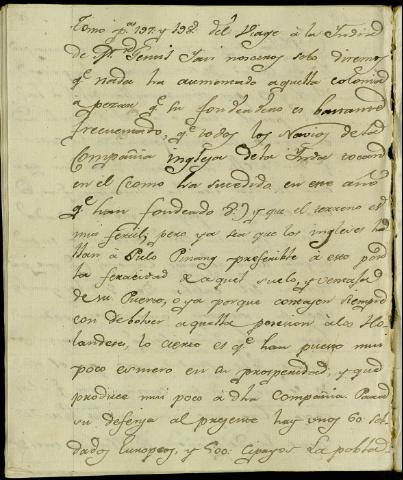 tomo p.ª 197. y 198. del Viage à la India
de M.r Genis Tan nosotros solo diremos
q.e nada ha aumentado aquella colonia
a pesar q.e su fondeadero es bastante
frecuentado, q.e todos los Navios de la
Compañia inglesa de la India tocan
en el (como ha sucedido en este año
q.e han fondeado ) y que el terreno es
mui fertil, pero ya sea que los ingleses ha
llan à Pulo Pinang preferible à este por
la feracidad aquel suelo, y ventaja
de su Puerto, ò ya porque contasen siempre
con debolver aquella posesion à los Ho
landeses, lo cierto es q.e han puesto mui
poco esmero en su prosperidad, y que
produce mui poco à dha compañia. Para
su defensa al presente hay unos 60 sol
dados Europeos, y 500: Cipayos. La poblac